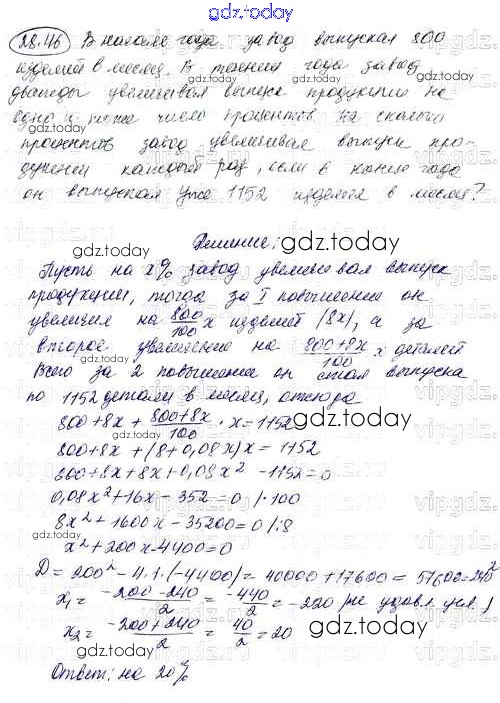 28.46 В начале года завод выпускал 800
изделий в месяц. В течении года завод
дважды увеличивал выпуск продукции на
одно и тоже число процентов. На сколько
процентов завод увеличивал выпуск про-
дукции каждый раз, если в конце года
он выпускал уже 1152 изделия в месяц?
Решение:
Пусть на x% завод увеличивал выпуск
продукции, тогда за I повышение он
увеличил на 800/100 x изделий (8x), а за
второе увеличение на (800+8x)/100 x деталей
Всего за 2 повышения он стал выпускать
по 1152 детали в месяц, отсюда
800+8x + (800+8x)/100 · x = 1152
800+8x + (8+0,08x)x = 1152
800+8x+8x+0,08x² -1152=0
0,08x²+16x-352=0 /·100
8x²+1600x-35200=0 /:8
x²+200x-4400=0
D=200²-4·1·(-4400)=40000+17600=57600=240²
x₁= (-200-240)/2 = -440/2 = -220 (не удовл. усл.)
x₂= (-200+240)/2 = 40/2 = 20
Ответ: на 20%
gdz.today
gdz.today
gdz.today
gdz.today
gdz.today
gdz.today
gdz.today
gdz.today
gdz.today
gdz.today
gdz.today
gdz.today